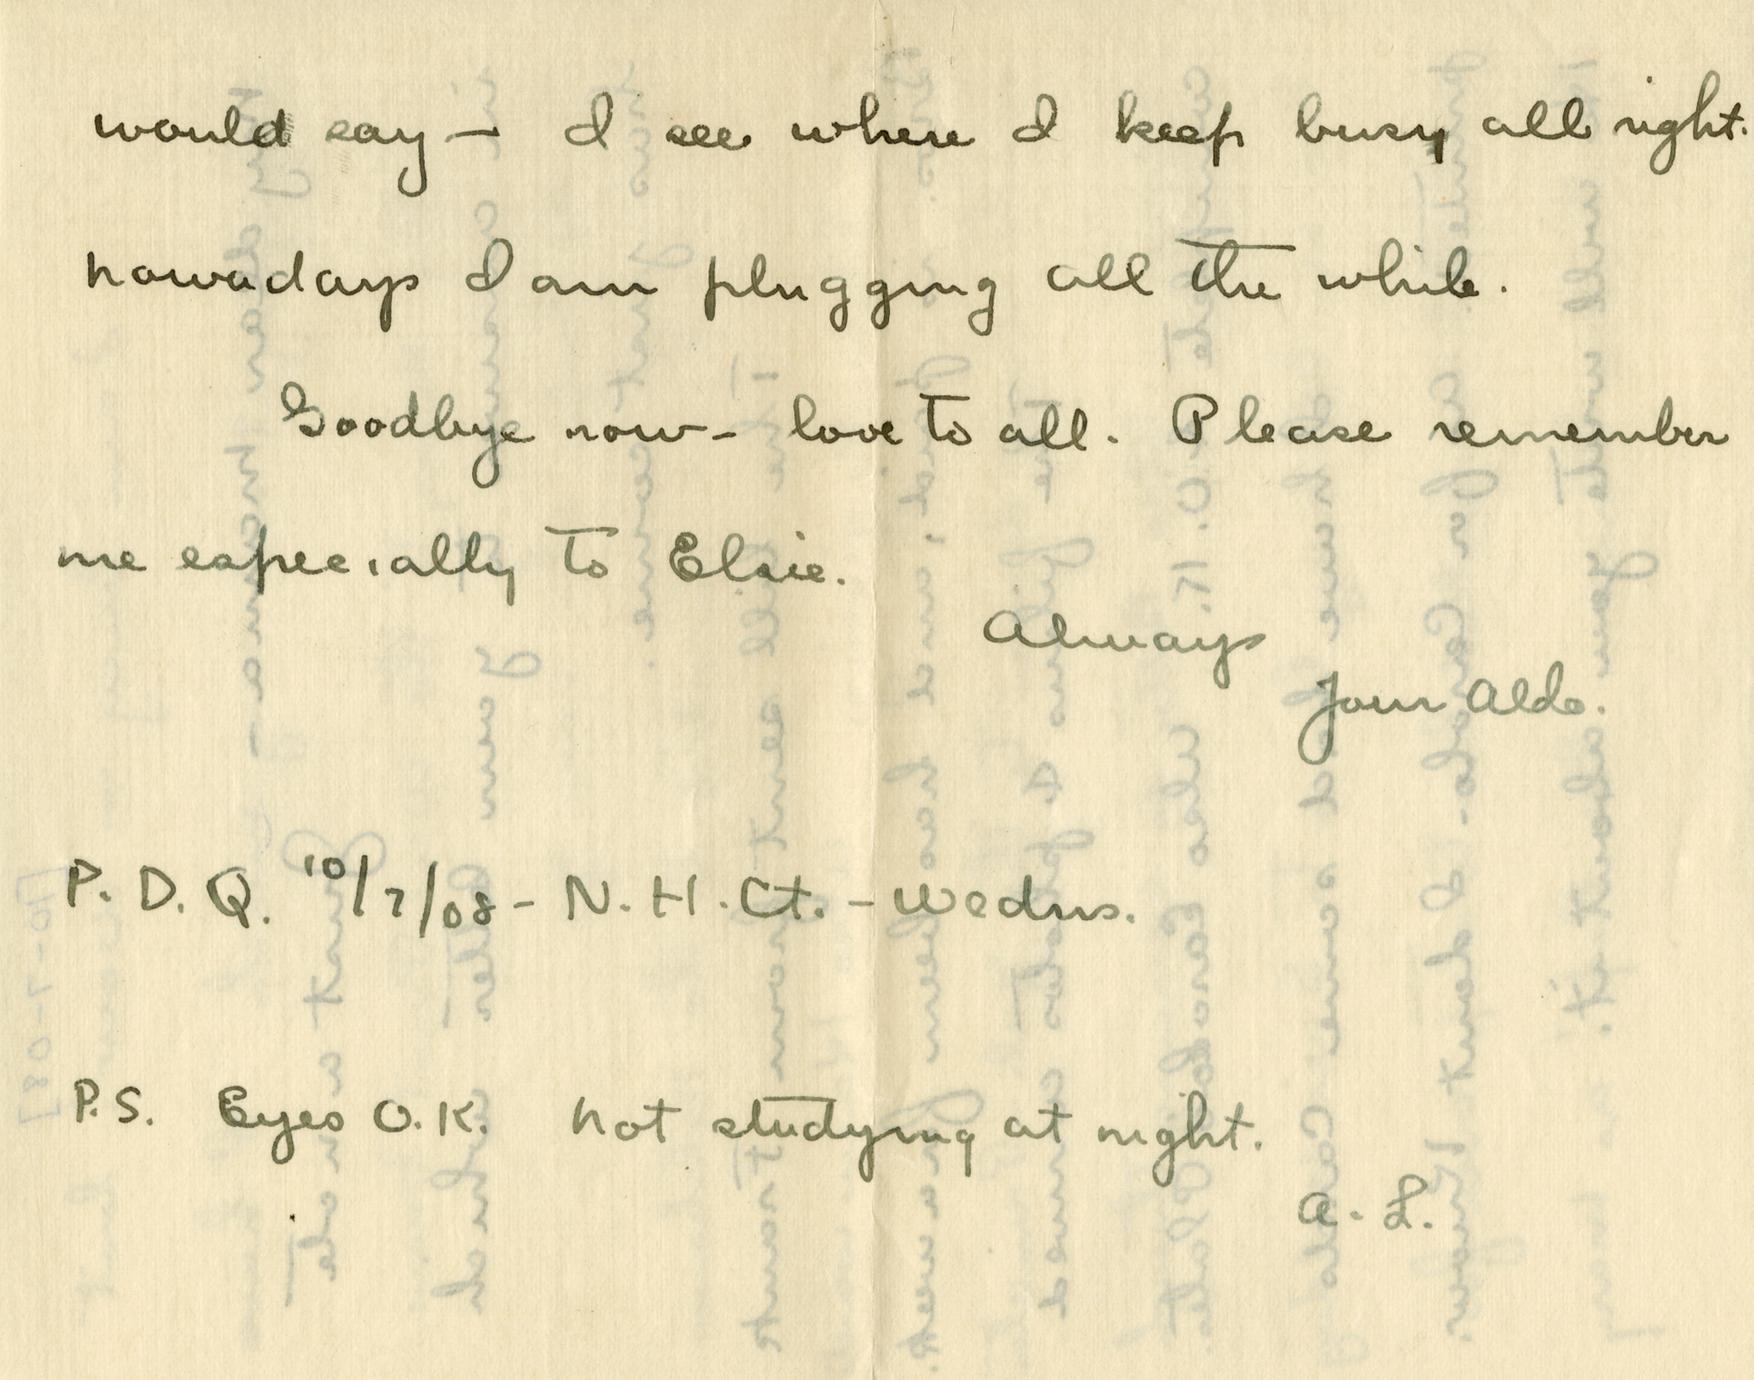 would say — I see where I keep busy all right.
nowadays I am plugging all the while.
Goodbye now - love to all. Please remember
me especially to Elsie.
Always
Your Aldo.
P. D. Q. 10/7/08 - N. H. Ct. - Wedns.
P.S. Eyes O.K. not studying at night.
A. L.